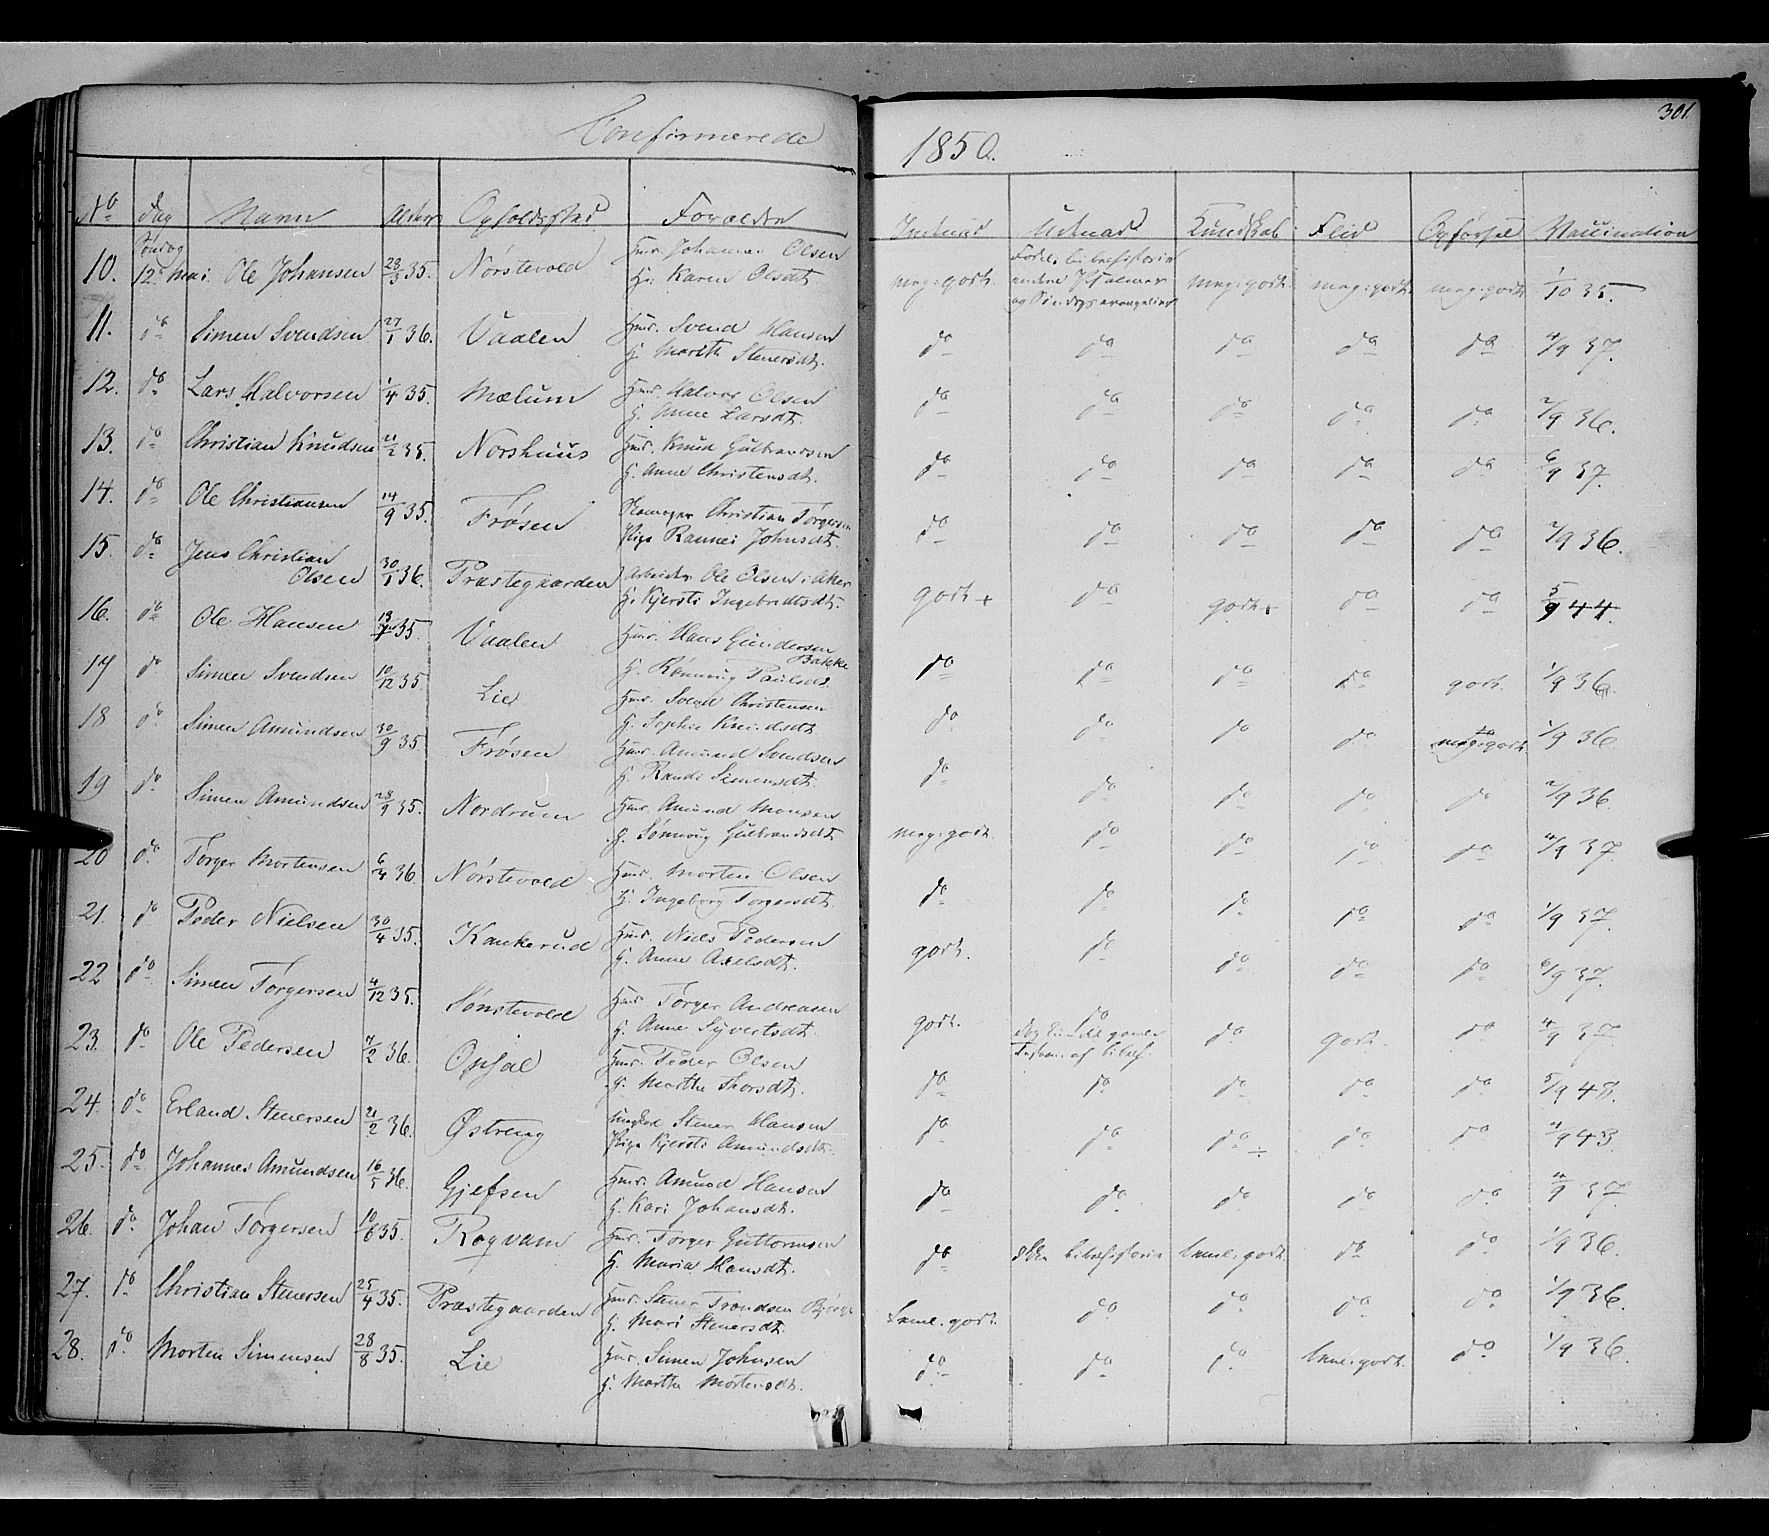 Confirmerede
1850.
301
No Dag Navn Alder Opholdssted Forældre Indenad Udenad Kundskab Flid Opførsel Vaccination
10. Søndag 12. Mai Ole Johansen 23/3 35. Nórstevold Huusm. Johannes Olsen
H. Karen Olsdt. meg: godt. meg: godt. meg: godt. meg: godt. 1/10 35.
11. do Simen Svendsen 27/1 36. Vaalen Huusm. Svend Hansen
H. Marith Stenersdt. do do do do do 4/9 37.
12. do Lars Halvorsen 1/4 35. Mælum Huusm. Halvor Olsen
H. Anne Larsdt. do do do do do 2/9 36.
13. do Christian Knudsen 21/2 35. Norshuus Huusm. Knud Gulbrandsen
H. Anne Christensdt. do do do do do 6/9 37.
14. do Ole Christiansen 14/9 35. Frøsen Christian Torgersen
Pige Rannei Johnsdt. do do do do do 2/9 36.
15. do Jens Christian
Olsen 30/1 36. Præstegaarden Arbeider Ole Olsen i Aker
H. Kjersti Ingebretsdt. godt + do godt + do do 5/9 44.
16. do Ole Hansen 35. Vaalen Huusm. Hans Gundersen
Bakke
H. Rønnoug Paulsdt. do do do do godt. 1/9 36.
17 do Simen Svendsen 10/12 35. Lie Huusm. Svend Christensen
H. Sophie Knudsdt. do do do do meg: godt 1/9 36
18 do Simen Amundsen 30/9 35. Frøsen Huusm. Amund Svendsen
H. Randi Simensdt. do do do do do 2/9 36.
19 do Simen Amundsen 28/9 35. Nordrum Huusm. Amund Monsen
H. Sønnoug Gulbrandsdt. meg: godt. do do do do 4/9 37
20 do Torger Mortensen 6/4 36. Nórstevold Huusm. Morten Olsen
H. Ingeborg Torgersdt. do do do do do 1/9 37.
21. do Peder Nielsen 30/4 35. Kankerud Huusm. Niels Pedersen
H. Anne Axelsdt. godt. do do do do 6/9 37.
22 do Simen Torgersen 4/12 35. Sønstevold Huusm. Torger Andreasen
H. Anne Syvertsdt. godt. do do godt. do 4/9 37.
23. do Ole Pedersen 7/2 36. Opsal Huusm. Peder Olsen
H. Marthe Thorsdt. do do do do do 5/9 48.
24. do Erland Stenersen 21/2 36. Østreng Ungkarl Stener Hansen
Pige Kjersti Amundsdt. do do do ÷ do do 4/9 43
25. do Johannes Amundsen 16/5 36. Gjefsen Huusm. Amund Hansen
H. Kari Johansdt. do do do do do 4/9 37.
26. do Johan Torgersen 10/6 35. Rogvam Huusm. Torger Guttormsen
H. Maria Hansdt. do bibelhistorie teml: godt. do do 1/9 36.
27. do Christian Stenersen 25/4 35. Præstegaarden Huusm. Stener Trondsen
H. Mari Stenersdt. teml. godt. do do do do 1/9 36.
28. do Morten Simensen 28/8 35. Lie Huusm. Simen Johnsen
H. Marthe Mortensdt. do do do teml: godt. do 1/9 36.